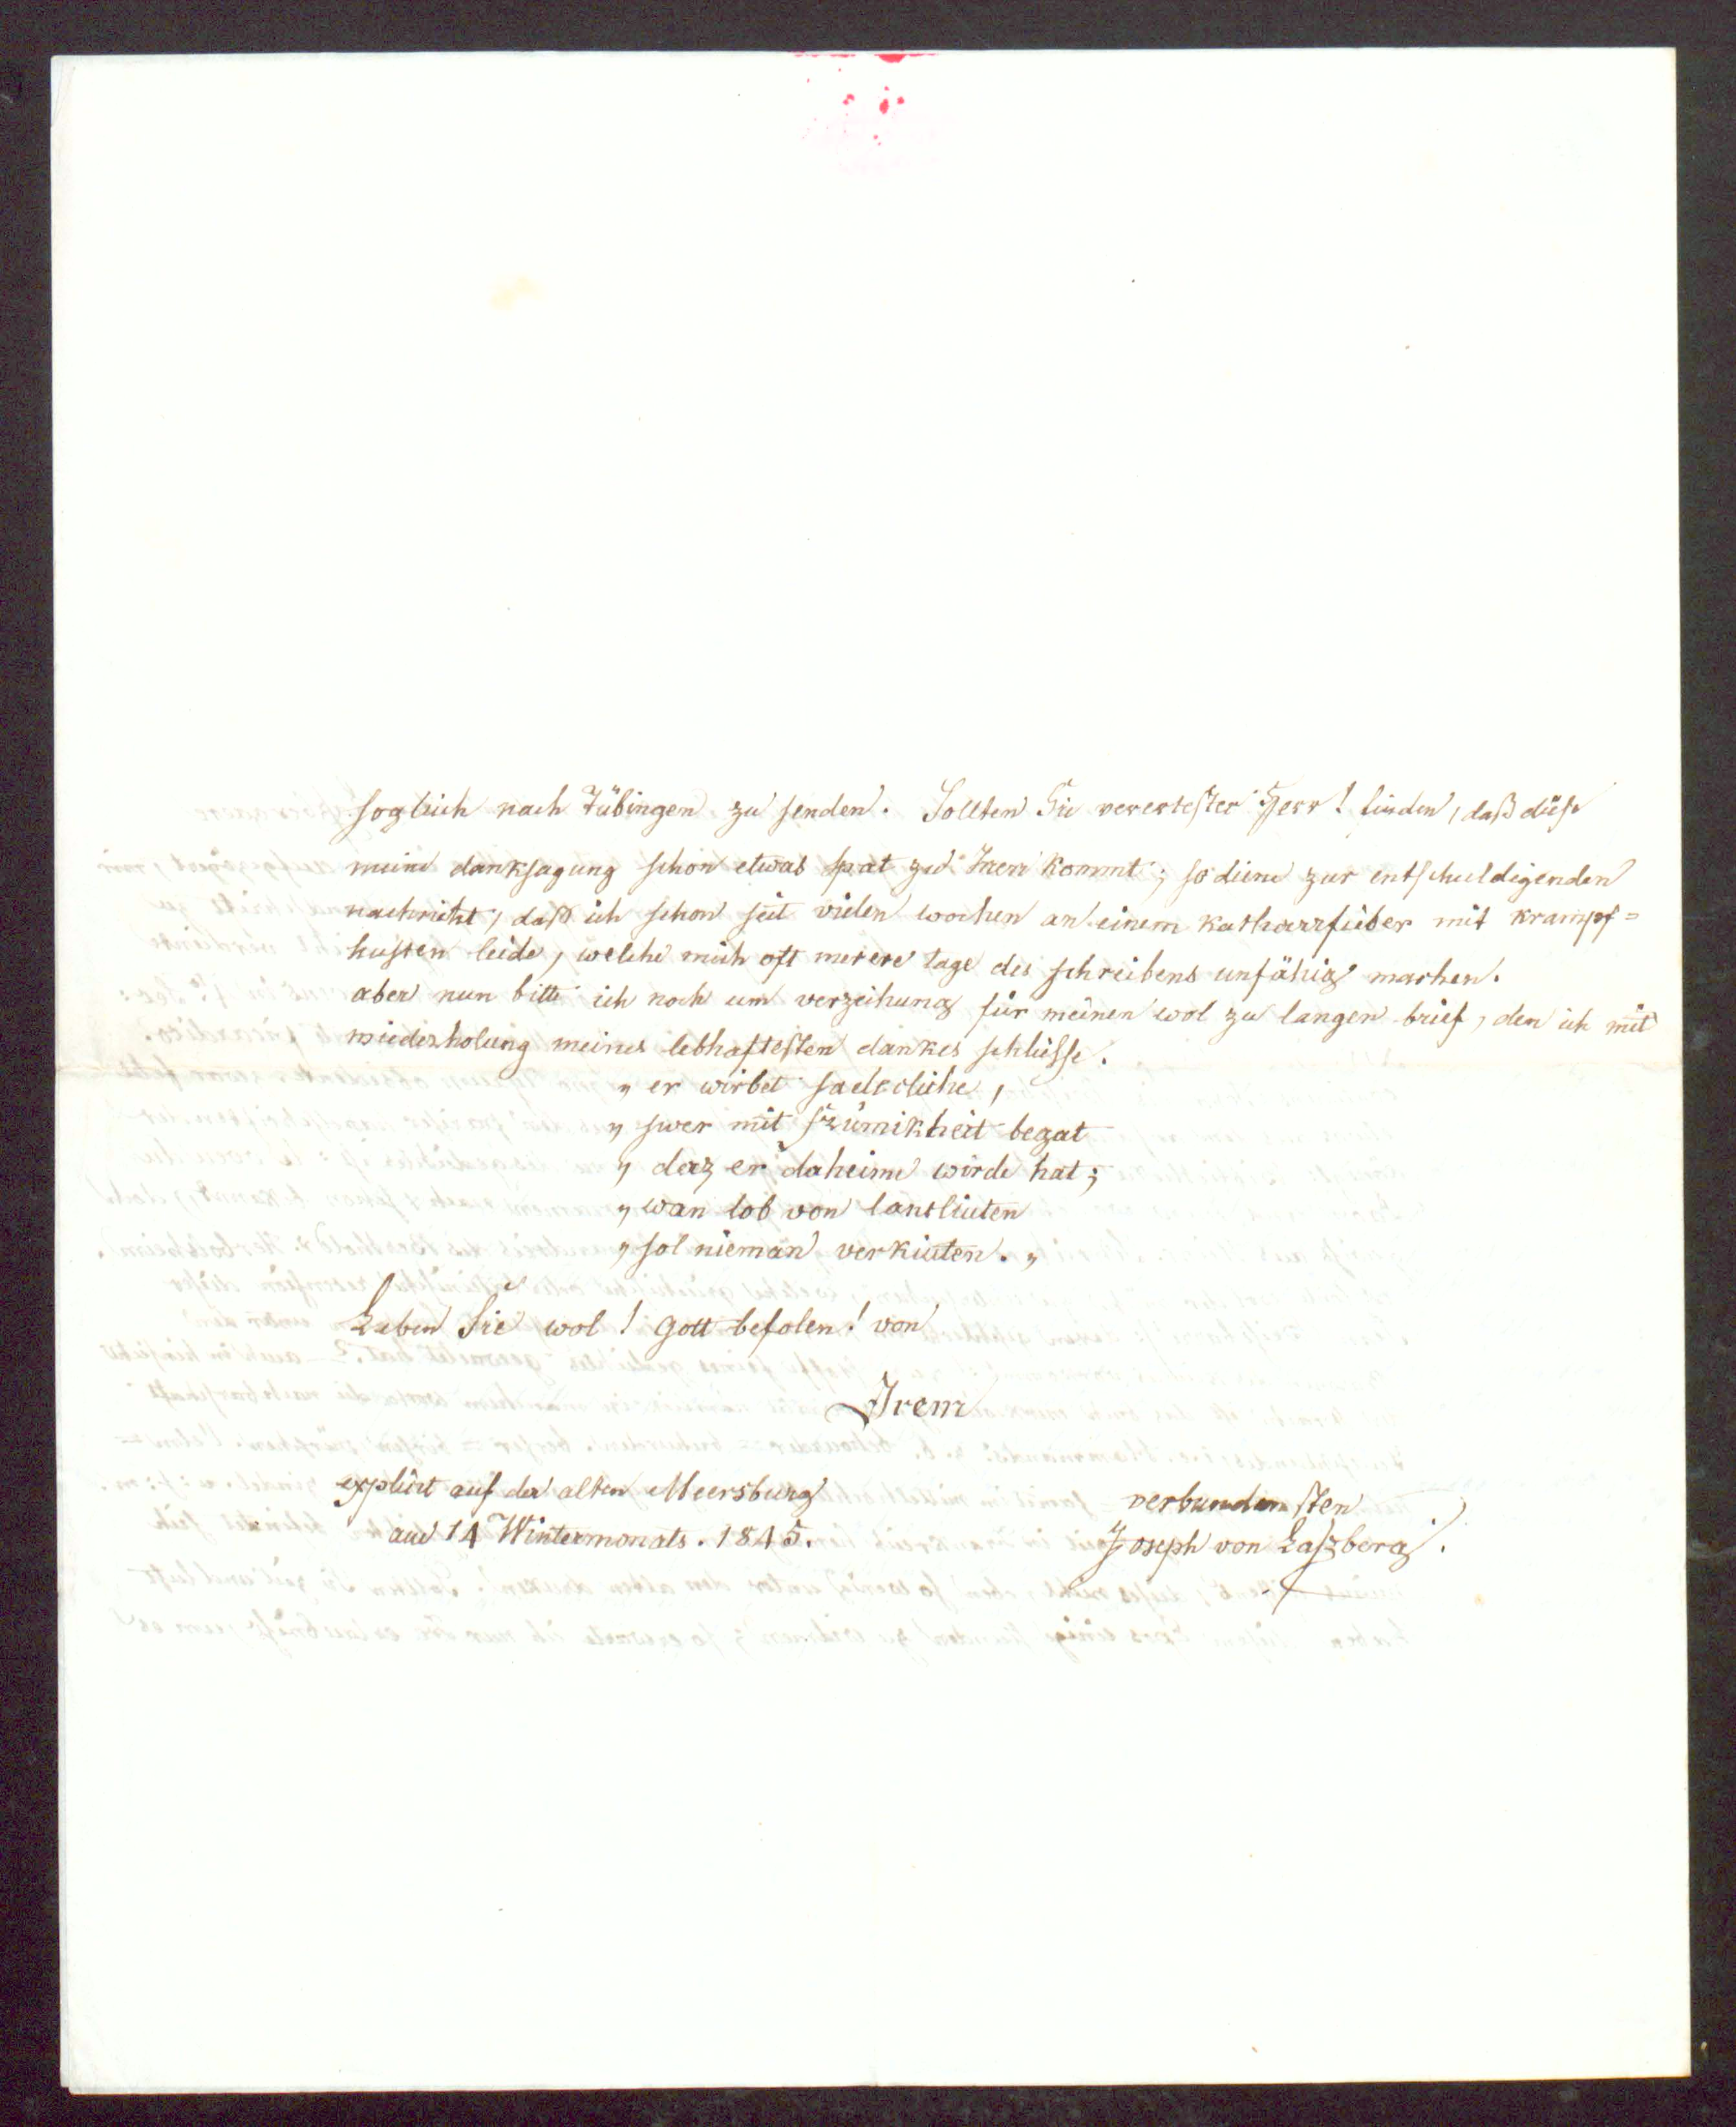 sogleich nach Tübingen zu senden. Sollten Sie verertester Herr! finden, daß diese
meine danksagung schon etwas spät zu Inen kommt; so diene zur entschuldigenden
nachricht, daß ich schon seit vielen wochen an einem katharrfieber mit krampf=
husten leide, welche mich oft merere tage des schreibens unfähig machen.
aber nun bitte ich noch um verzeihung für meinen wol zu langen brief, den ich mit
wiederholung meines lebhaftesten dankes schließe.
„ er wirbet saelecliche,
„ swer mit frümikheit begat
„ daz er daheime wirde hat;
„ wan lob von lantliuten
„ sol nieman verkiuten. „
Leben Sie wol! Gott befolen! von
Irem
explicit auf der alten Meersburg
am 14 Wintermonats. 1845.
verbundensten
Joseph von Laszberg.